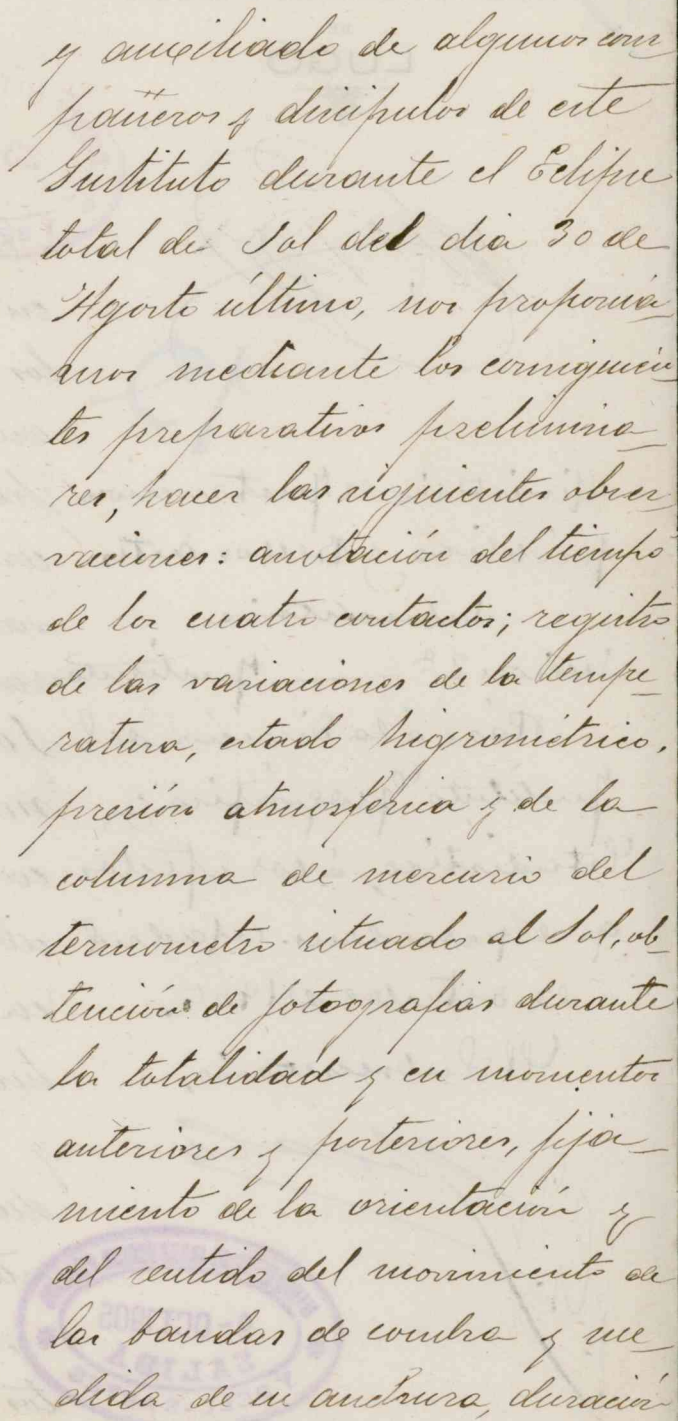 y auxiliado de algunos com
pañeros y discipulos de este
Instituto durante el Eclipse
total de Sol del dia 30 de
Agosto último, nos proponia_
mos mediante los consiguien_
tes preparativos prelimina_
res, hacer las siguientes obser_
vaciones: anotación del tiempo
de los cuatro contactos; registro
de las variaciones de la tempe_
ratura, estado higrométrico,
presión atmosferica y de la
columna de mercurio del
termometro situado al Sol, ob_
tención de fotografias durante
la totalidad y en momentos
anteriores y posteriores, fija_
miento de la orientación y
del sentido del movimiento de
las bandas de sombra y me_
dida de su anchura, duración